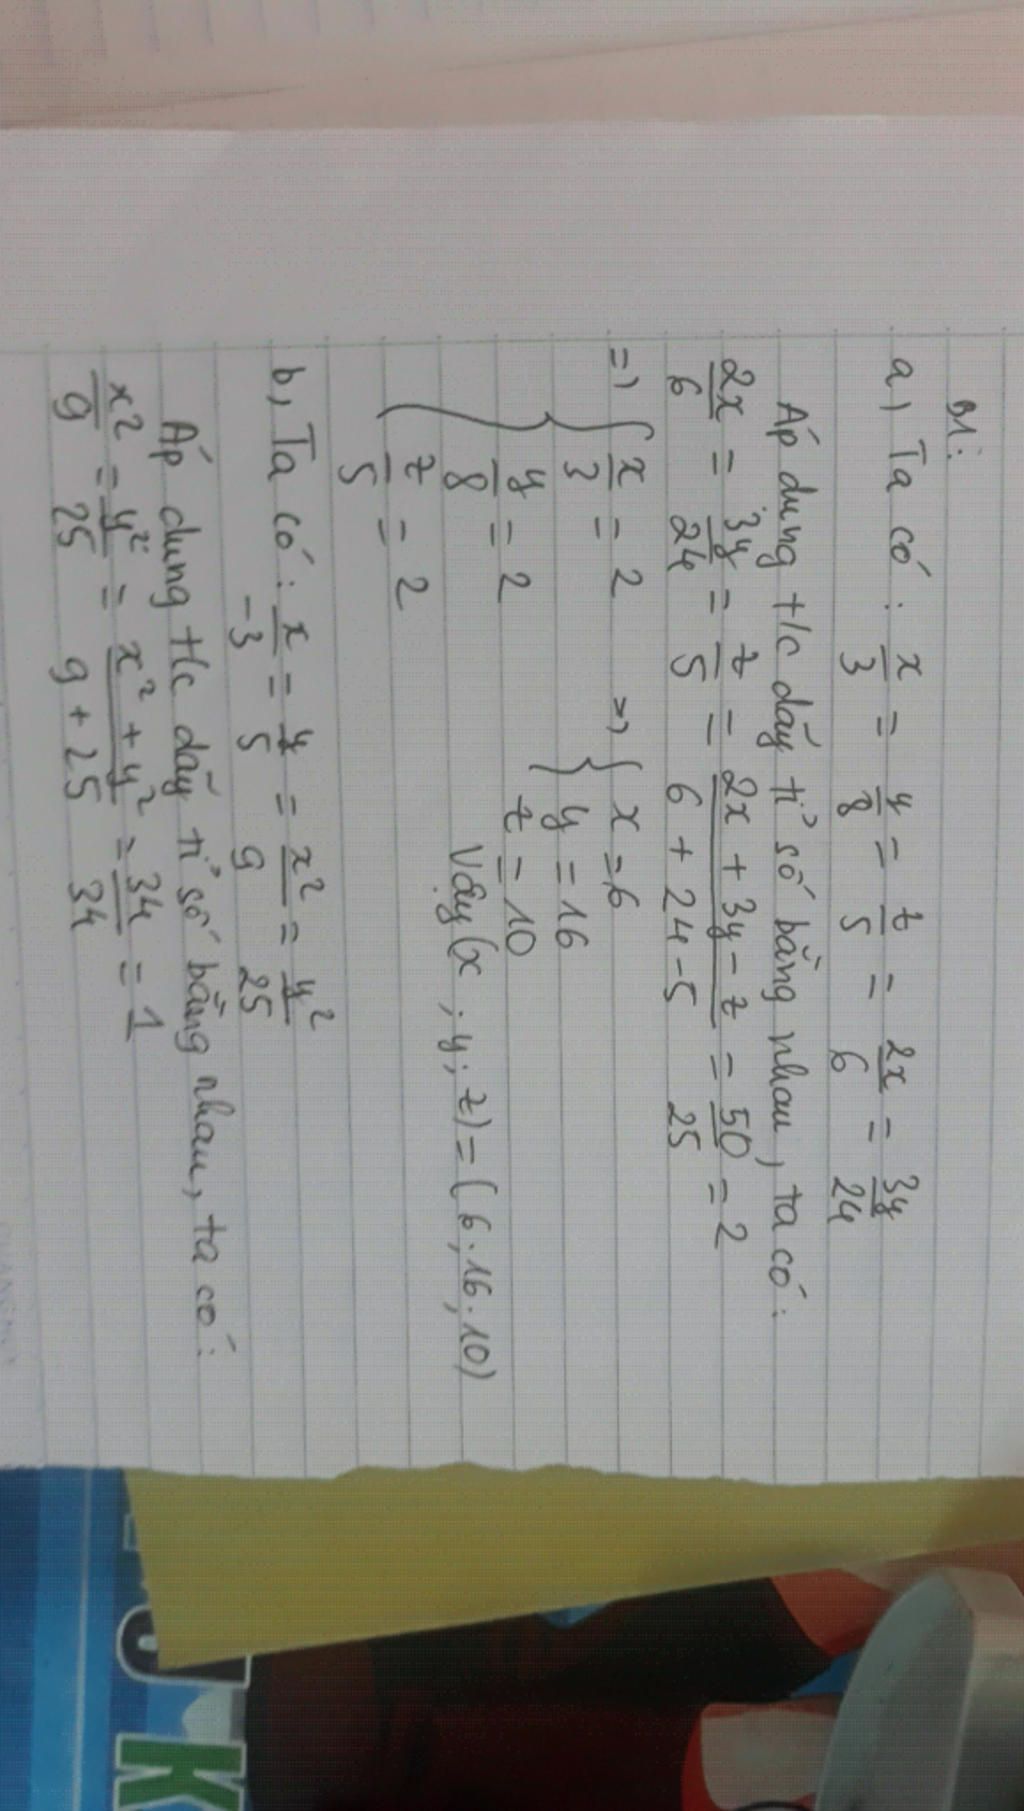 B1:
a, Ta có: x/3 = y/8 = z/5 = 2x/6 = 3y/24
Áp dụng t/c dãy tỉ số bằng nhau, ta có:
2x/6 = 3y/24 = z/5 = (2x + 3y - z)/(6 + 24 - 5) = 50/25 = 2
=> { x/3 = 2 => { x = 6
y/8 = 2 y = 16
z/5 = 2 z = 10
Vậy (x; y; z) = (6; 16; 10)
b, Ta có: x/-3 = y/5 = x²/9 = y²/25
Áp dụng t/c dãy tỉ số bằng nhau, ta có:
x²/9 = y²/25 = (x² + y²)/(9 + 25) = 34/34 = 1
K